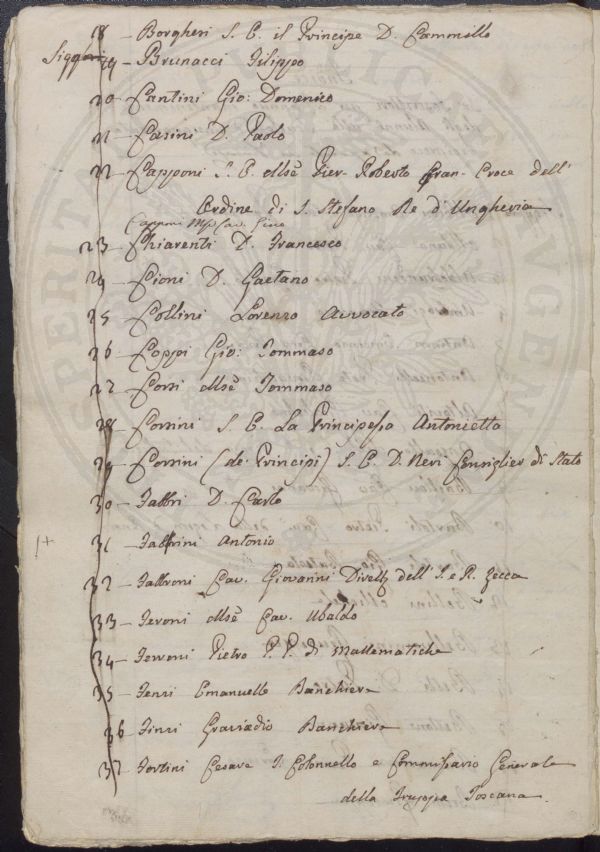 18 - Borgheri S. E. il Principe D. Cammillo
Siggri 19 - Brunacci Filippo
20 - Cantini Gio: Domenico
21 - Casini D. Paolo
22 - Capponi S. E. Msé Pier-Roberto Gran-Croce dell'
Ordine di S. Stefano Re d'Ungheria
Capponi Cav. Gino
23 - Chiarenti D. Francesco
24 - Cioni D. Gaetano
25 - Collini Lorenzo Avvocato
26 - Coppi Gio: Tommaso
27 - Corsi Msé Tommaso
28 - Corsini S. E. La Principessa Antonietta
29 - Corsini (de' Principi) S. E. D. Neri Consiglier di Stato
30 - Fabbri D. Carlo
31 - Fabbrini Antonio
32 - Fabbroni Cav. Giovanni Dirett dell' I. e R. Zecca
33 - Feroni Msé Cav. Ubaldo
34 - Ferroni Pietro P. P. di Mattematiche
35 - Fenzi Emanuelle Banchiere
36 - Finzi Graziadio Banchiere
37 - Fortini Cesare T. Colonnello e Commissario Generale
della Truppa Toscana